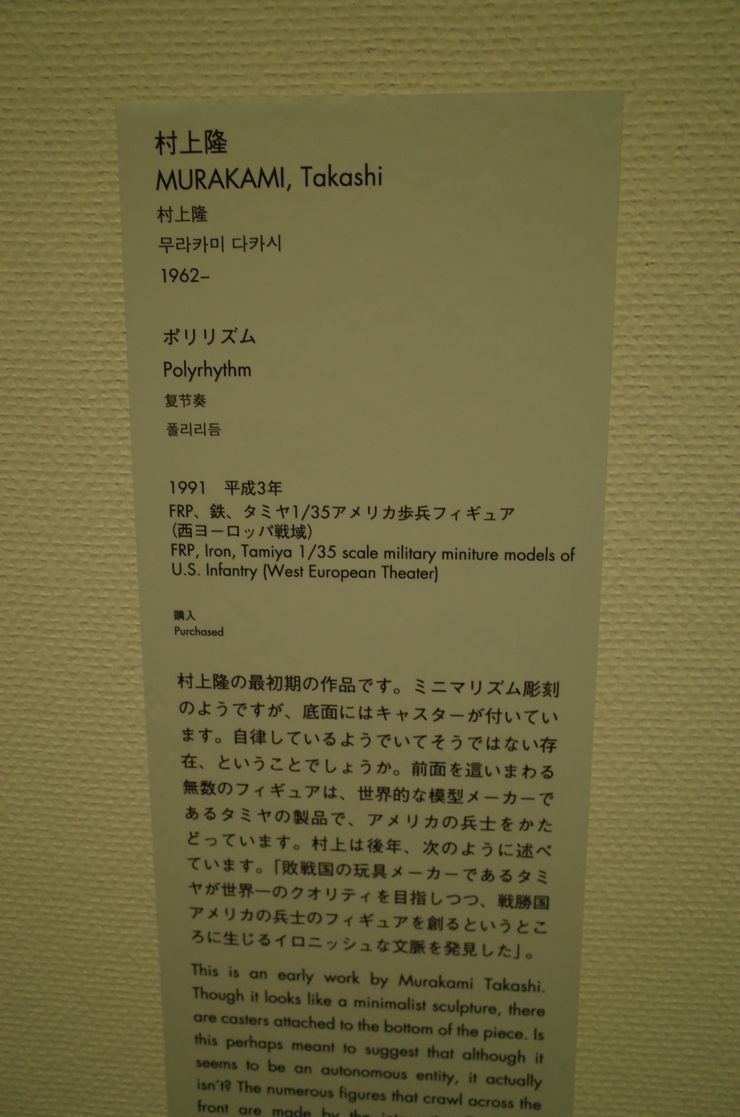 村上隆
MURAKAMI, Takashi
村上隆
무라카미 다카시
1962–
ポリリズム
Polyrhythm
复节奏
폴리리듬
1991　平成3年
FRP、鉄、タミヤ1/35アメリカ歩兵フィギュア
（西ヨーロッパ戦域）
FRP, Iron, Tamiya 1/35 scale military miniture models of
U.S. Infantry (West European Theater)
購入
Purchased
村上隆の最初期の作品です。ミニマリズム彫刻
のようですが、底面にはキャスターが付いてい
ます。自律しているようでいてそうではない存
在、ということでしょうか。前面を這いまわる
無数のフィギュアは、世界的な模型メーカーで
あるタミヤの製品で、アメリカの兵士をかた
どっています。村上は後年、次のように述べ
ています。「敗戦国の玩具メーカーであるタミ
ヤが世界一のクオリティを目指しつつ、戦勝国
アメリカの兵士のフィギュアを創るというとこ
ろに生じるイロニッシュな文脈を発見した」。
This is an early work by Murakami Takashi.
Though it looks like a minimalist sculpture, there
are casters attached to the bottom of the piece. Is
this perhaps meant to suggest that although it
seems to be an autonomous entity, it actually
isn't? The numerous figures that crawl across the
front are made by the